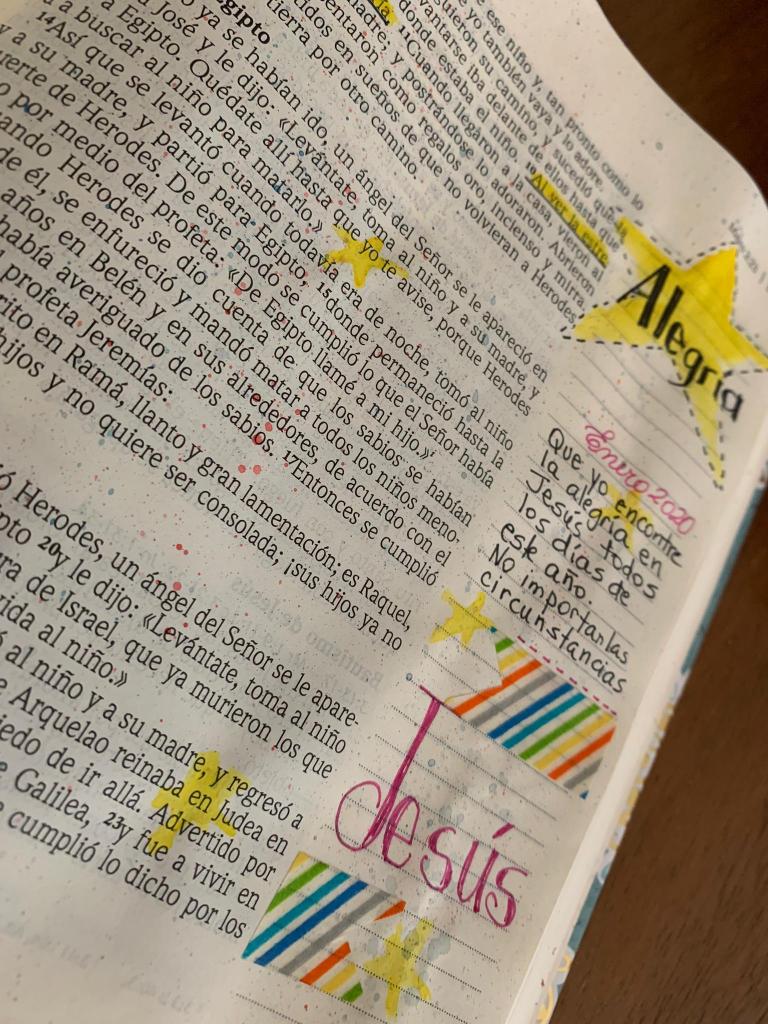 ese niño y, tan pronto como lo
yo también vaya y lo adore.
uieron su camino, y sucedió que la
vantarse iba delante de ellos hasta que
donde estaba el niño. Al ver la estre-
Cuando llegaron a la casa, vieron al
madre; y postrándose lo adoraron. Abrieron
sentaron como regalos oro, incienso y mirra.
tidos en sueños de que no volvieran a Herodes,
tierra por otro camino.
Egipto
o ya se habían ido, un ángel del Señor se le apareció en
a José y le dijo: «Levántate, toma al niño y a su madre, y
a Egipto. Quédate allí hasta que yo te avise, porque Herodes
a a buscar al niño para matarlo.»
14Así que se levantó cuando todavía era de noche, tomó al niño
y a su madre, y partió para Egipto, 15donde permaneció hasta la
uerte de Herodes. De este modo se cumplió lo que el Señor había
o por medio del profeta: «De Egipto llamé a mi hijo.»
ando Herodes se dio cuenta de que los sabios se habían
de él, se enfureció y mandó matar a todos los niños meno-
años en Belén y en sus alrededores, de acuerdo con el
había averiguado de los sabios. 17Entonces se cumplió
profeta Jeremías:
rito en Ramá, llanto y gran lamentación; es Raquel,
hijos y no quiere ser consolada; ¡sus hijos ya no
ó Herodes, un ángel del Señor se le apare-
ipto 20y le dijo: «Levántate, toma al niño
ra de Israel, que ya murieron los que
rida al niño.»
ó al niño y a su madre, y regresó a
e Arquelao reinaba en Judea en
iedo de ir allá. Advertido por
e Galilea, 23y fue a vivir en
e cumplió lo dicho por los
Alegría
Enero 2020
Que yo encontre
la alegría en
Jesús todos
los días de
este año.
No importar las
circunstancias
Jesús